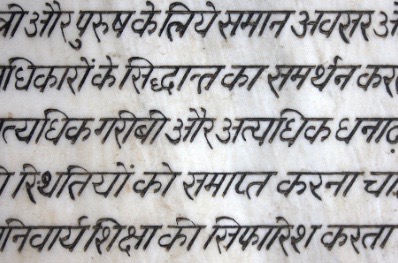 त्री और पुरुष के लिये समान अवसर औ
धिकारों के सिद्धान्त का समर्थन कर
त्यधिक गरीबी और अत्यधिक धनाढ
स्थितियों को समाप्त करना चा
निवार्य शिक्षा की सिफारिश करता